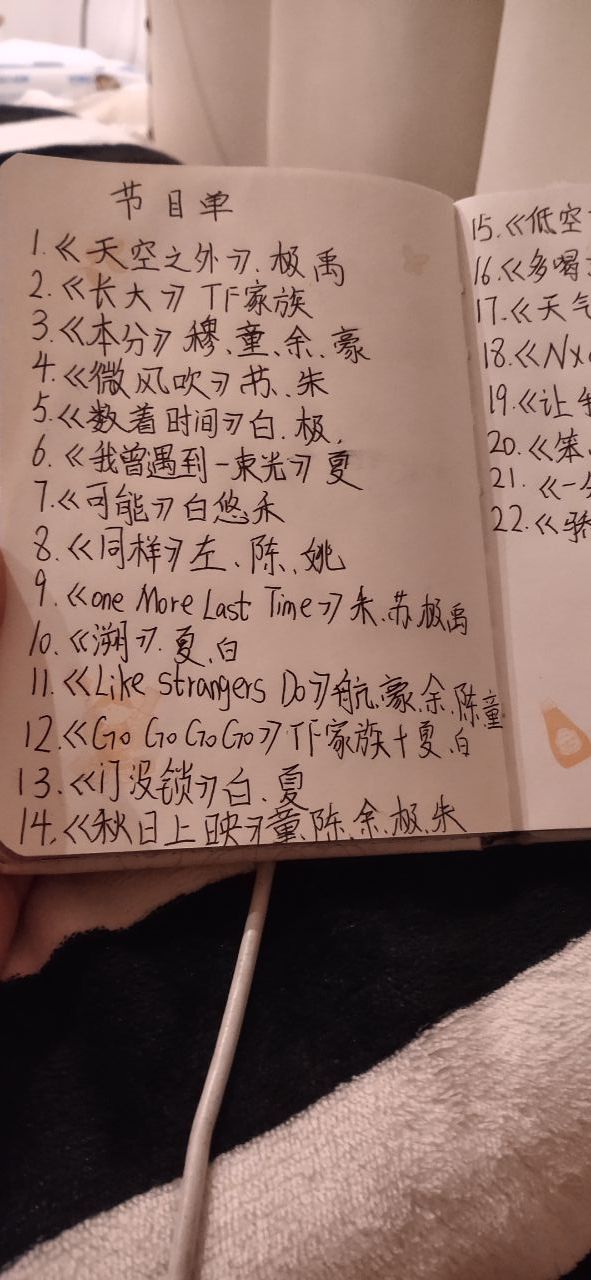 节目单
1.《天空之外》.极禹
2.《长大》TF家族
3.《本分》穆、童、余、豪
4.《微风吹》苏、朱
5.《数着时间》白.极.
6.《我曾遇到一束光》夏
7.《可能》白悠禾
8.《同样》左、陈、姚
9.《one More Last Time》朱.苏.极禹
10.《溯》.夏.白
11.《Like strangers Do》航.豪.余.陈童
12.《Go Go Go Go》TF家族+夏.白
13.《门没锁》白.夏
14.《秋日上映》童.陈.余.极.朱
15.《低空
16.《多喝
17.《天气
18.《Nx
19.《让
20.《笨
21.《一
22.《骄